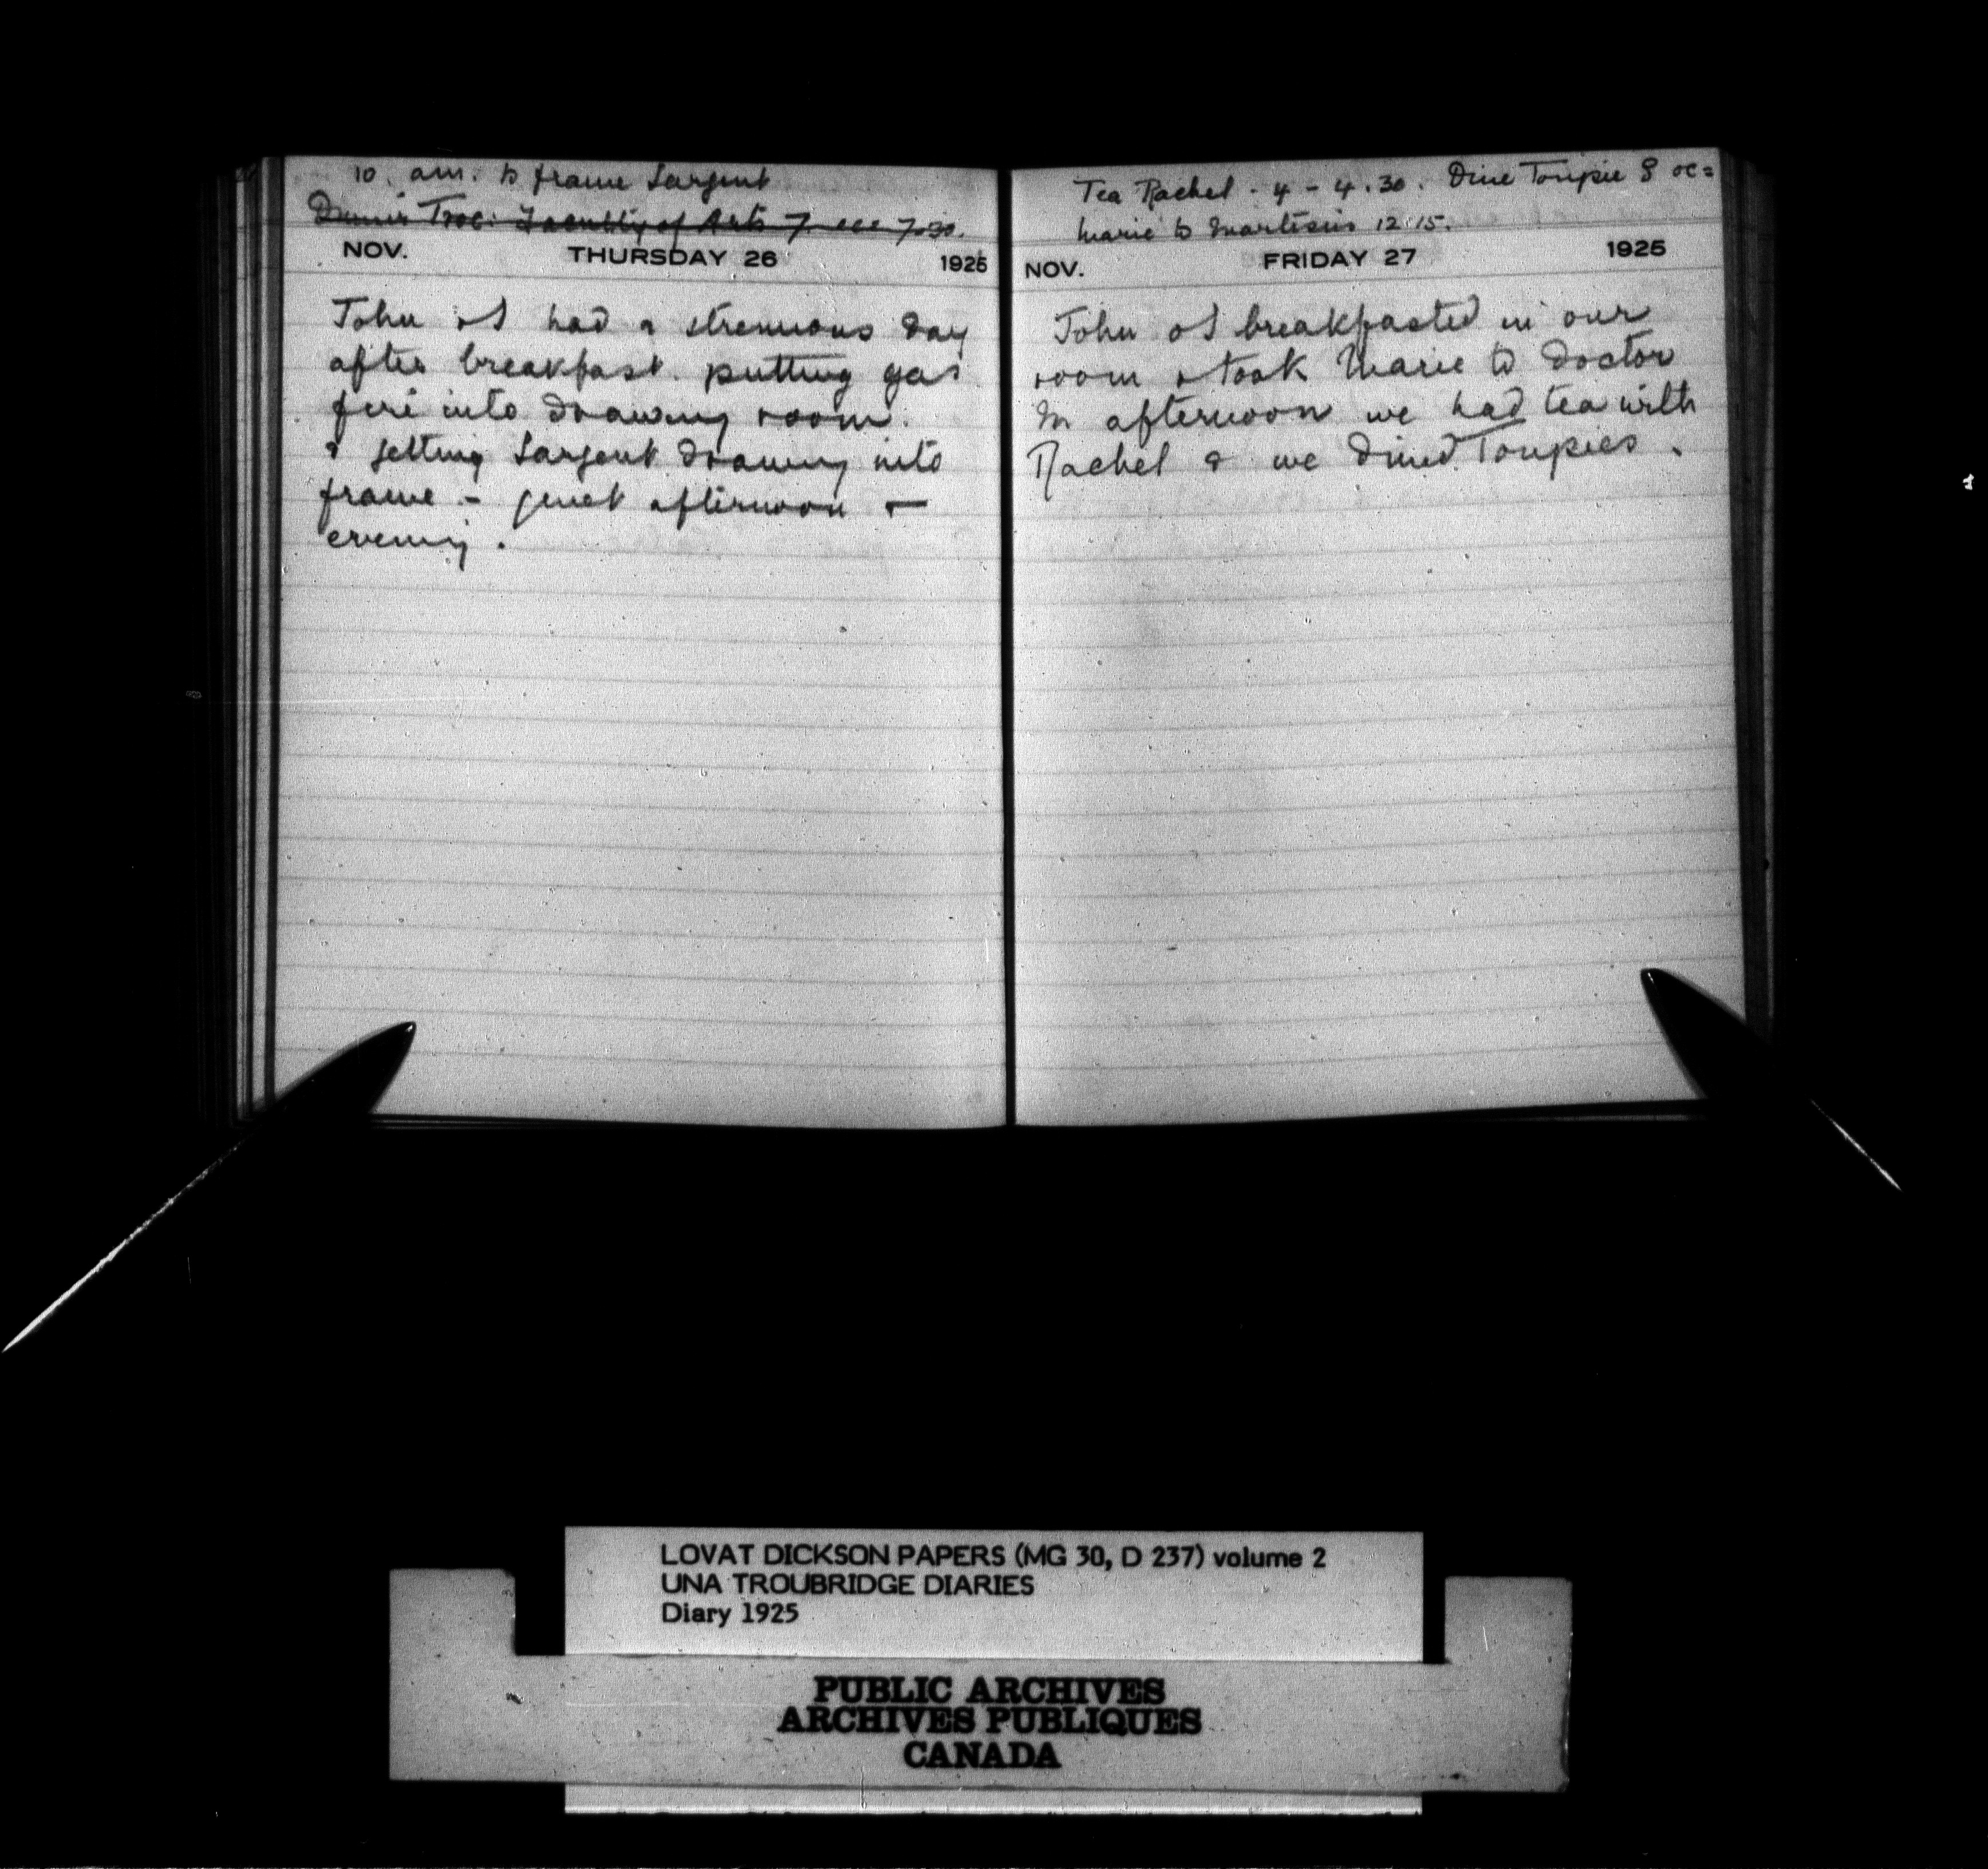 10. am. to frame Sargent
Dinner Troc: Faculty of Arts 7. 7.30.
NOV. THURSDAY 26 1925
John & I had a strenuous day
after breakfast. putting gas
fire into drawing room.
& getting Sargent drawing into
frame - quiet afternoon &
evening.
Tea Rachel - 4 - 4.30. Dine Toupie 8 oc=
Marie to 12.15.
NOV. FRIDAY 27 1925
John & I breakfasted in our
room & took Marie to Doctor
In afternoon we had tea with
Rachel & we dined Toupies.
LOVAT DICKSON PAPERS (MG 30, D 237) volume 2
UNA TROUBRIDGE DIARIES
Diary 1925
PUBLIC ARCHIVES
ARCHIVES PUBLIQUES
CANADA